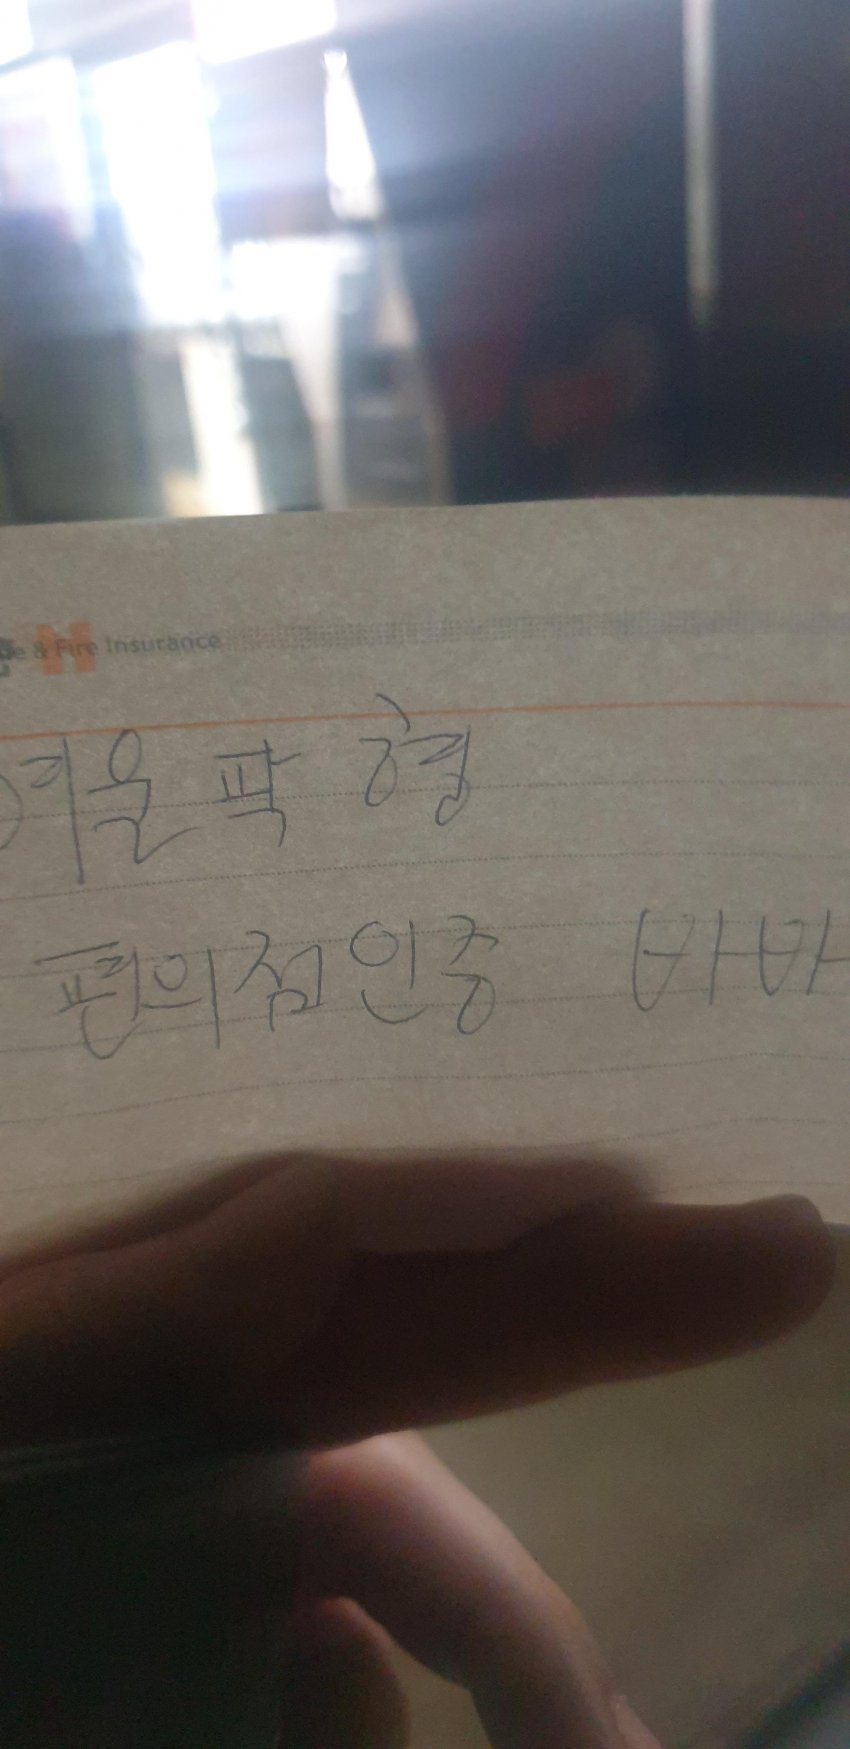 & Fire Insurance
겨울 팍 형
편의점인증 바바